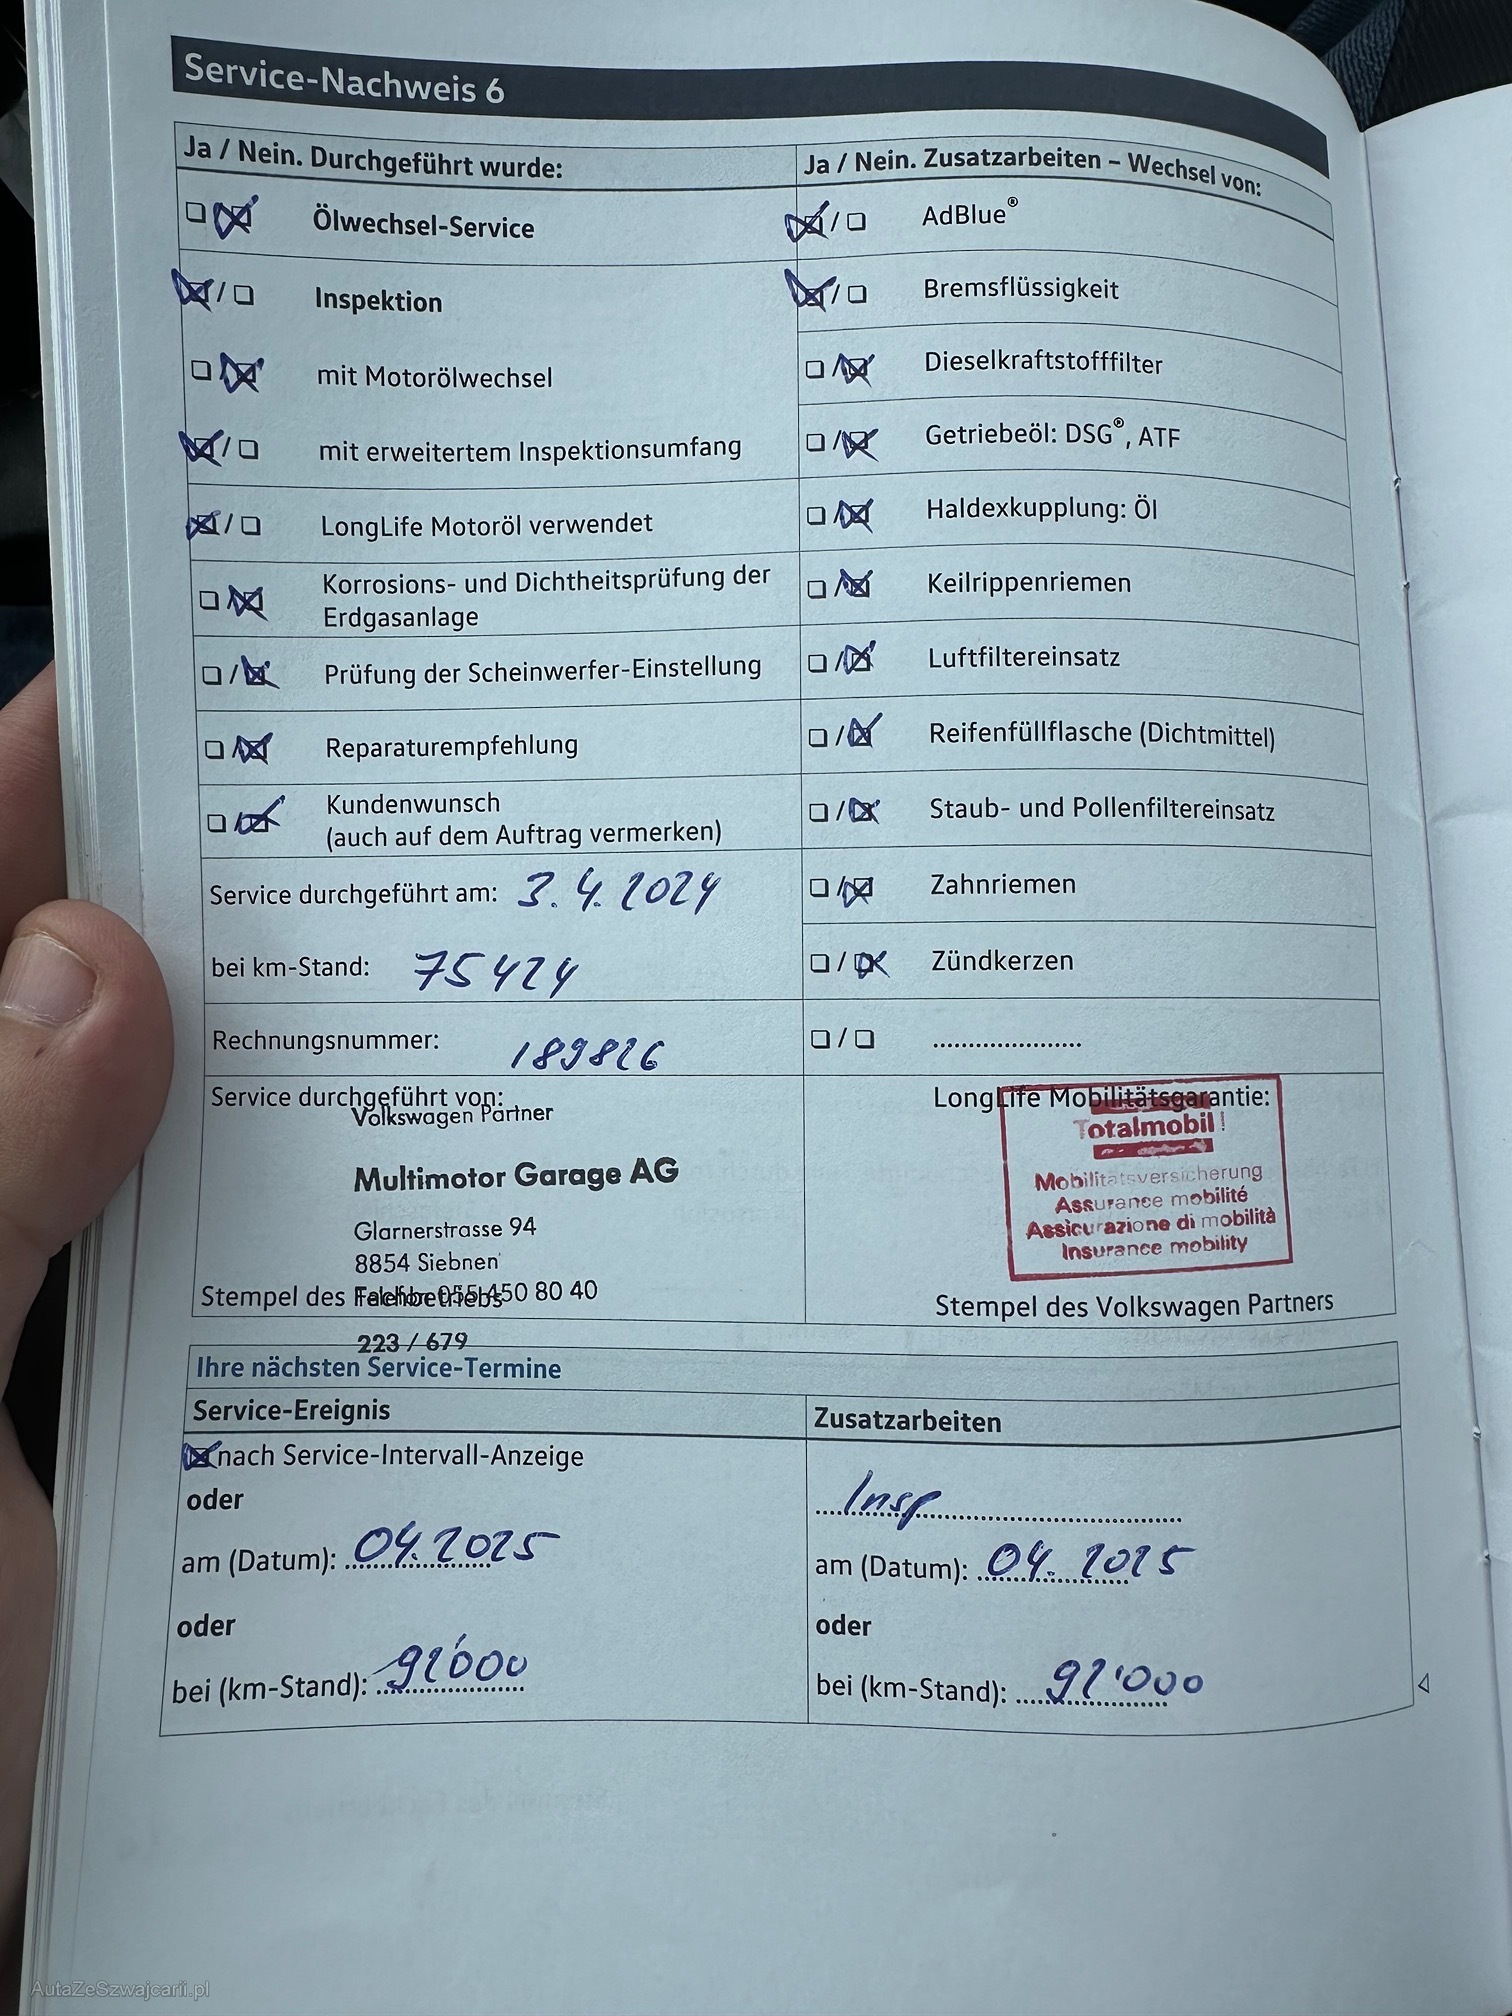 Service-Nachweis 6
Ja / Nein. Durchgeführt wurde:
Ölwechsel-Service
/ Inspektion
mit Motorölwechsel
/ mit erweitertem Inspektionsumfang
/ LongLife Motoröl verwendet
/ Korrosions- und Dichtheitsprüfung der
Erdgasanlage
/ Prüfung der Scheinwerfer-Einstellung
/ Reparaturempfehlung
/ Kundenwunsch
(auch auf dem Auftrag vermerken)
Service durchgeführt am: 3.4.2024
bei km-Stand: 75424
Rechnungsnummer: 189826
Service durchgeführt von:
Volkswagen Partner
Multimotor Garage AG
Glarnerstrasse 94
8854 Siebnen
Telefon 055 450 80 40
Stempel des Fachbetriebs
223 / 679
Ja / Nein. Zusatzarbeiten – Wechsel von:
/ AdBlue®
/ Bremsflüssigkeit
/ Dieselkraftstofffilter
/ Getriebeöl: DSG®, ATF
/ Haldexkupplung: Öl
/ Keilrippenriemen
/ Luftfiltereinsatz
/ Reifenfüllflasche (Dichtmittel)
/ Staub- und Pollenfiltereinsatz
/ Zahnriemen
/ Zündkerzen
/ .....................
LongLife Mobilitätsgarantie:
Totalmobil!
Mobilitätsversicherung
Assurance mobilité
Assicurazione di mobilità
Insurance mobility
Stempel des Volkswagen Partners
Ihre nächsten Service-Termine
Service-Ereignis
nach Service-Intervall-Anzeige
oder
am (Datum): 04.2025
oder
bei (km-Stand): 92'000
Zusatzarbeiten
Insp
am (Datum): 04.2025
oder
bei (km-Stand): 92'000
AutaZeSzwajcarii.pl